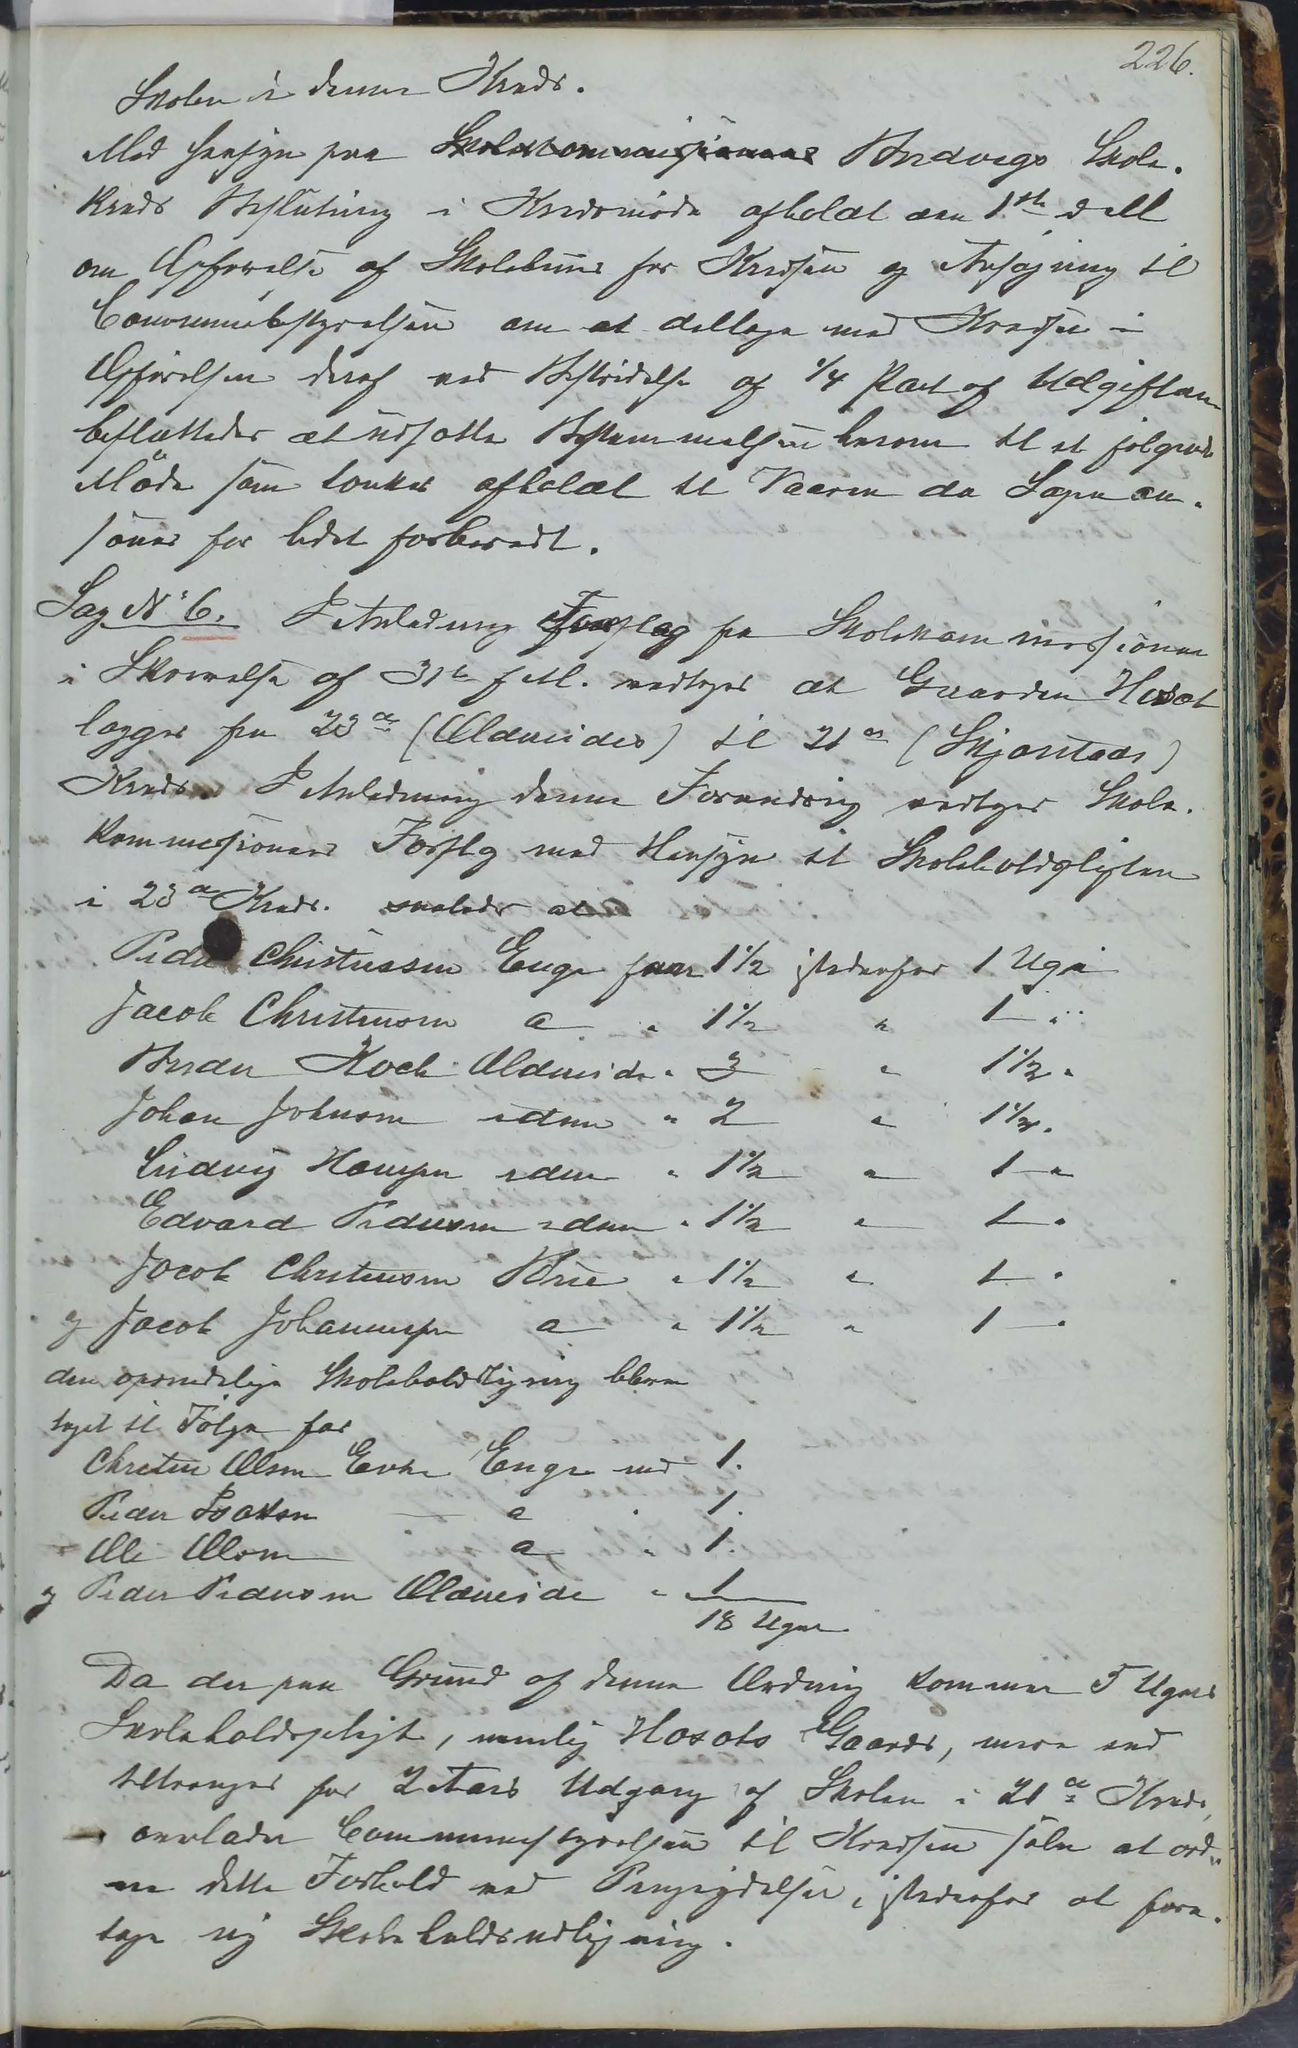 226.
Skolen i denne Kreds.
Med Hensyn paa Skolekommissionens Andvegs Skole-
kreds Beslutning i Kredsmöde afholdt den 1ste d. M.
om Opförelse af Skolehuus for Kredsen og Ansøgning til
Communebestyrelsen om at deltage med Kredsen i
Opförelsen deraf ved Bestridelse af 1/4 Part af Udgifterne
besluttedes at udsætte Bestemmelsen herom til et følgende
Möde som tænkes afholdt til Vaaren da Sagen an-
saaes for lidet forberedt.
Sag No 6. I Anledning Forslag fra Skolekommissionen
i Skrivelse af 31te f. M. vedtoges at Gaarden Hosøt
lægges fra 23de (Oldereides) til 21de (Skjerstads)
Kreds. I Anledning denne Forandring vedtoges Skole-
kommissionens Forslag med Hensyn til Skoleholdspligten
i 23de Kreds. saaledes at
Peder Christensen Enge faar 1 1/2 istedenfor 1 Uge
Jacob Christensen a " 1 1/2 " 1 "
Koch Oldereide " 3 " 1 1/2 "
Johan Johnsen idem " 2 " 1 1/2 "
Ludvig Hansen idem " 1 1/2 " 1 "
Edvard Pedersen idem " 1 1/2 " 1 "
Jacob Christensen " 1 1/2 " 1 "
og Jacob Johannesen a " 1 1/2 " 1 "
den oprindelige Skoleholdsligning bliver
taget til Følge for
Christen Olsen Enge med 1.
Peder Isaksen a " 1.
Ole Olsen a " 1.
og Peder Pedersen Oldereide " 1
18 Uger
Da der paa Grund af denne Ordning kommer 5 Ugers
Skoleholdspligt, nemlig Hosøts Gaards, mere end
tiltrænges for 2 Aars Udgang af Skolen i 21de Kreds,
overlader Communestyrelsen til Kredsen selv at ord-
ne dette Forhold ved Pengeydelser, istedenfor at fore-
tage ny Skoleholdsudligning.